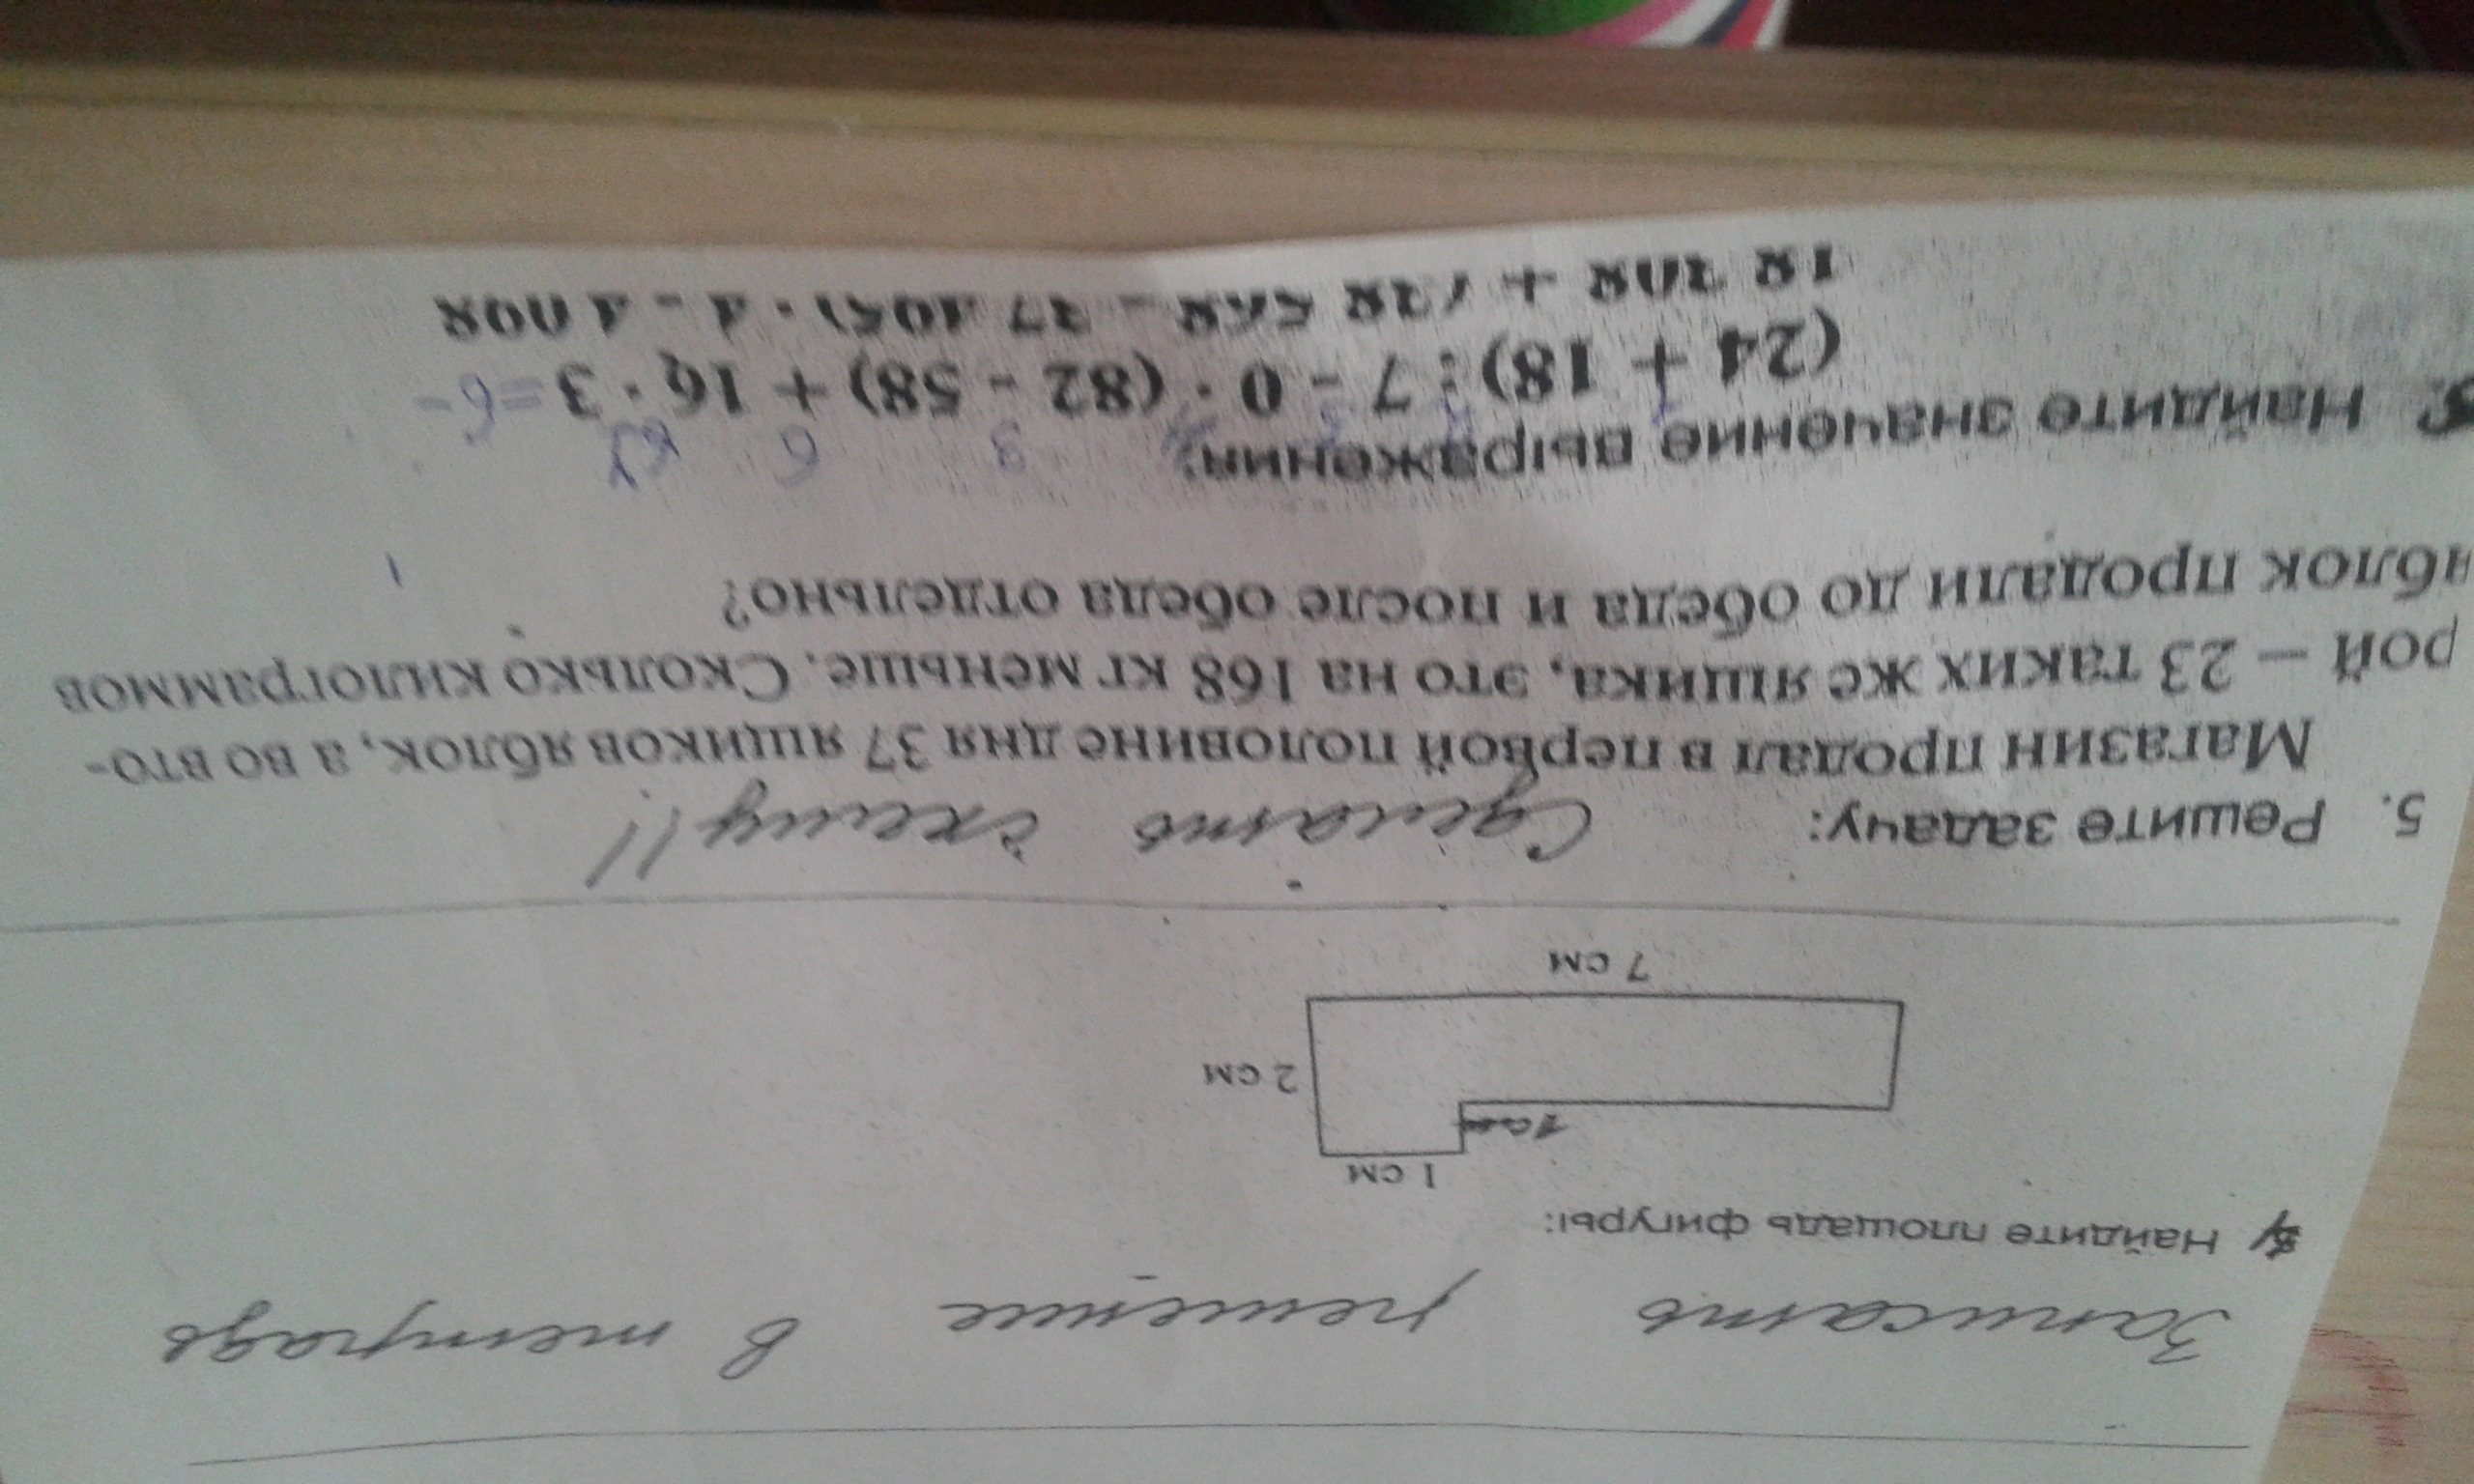 Записать решение в тетрадь
4 Найдите площадь фигуры:
1 см
1 см
2 см
7 см
5. Решите задачу: Сделать схему!!
Магазин продал в первой половине дня 37 ящиков яблок, а во вто-
рой – 23 таких же ящика, это на 168 кг меньше. Сколько килограммов
яблок продали до обеда и после обеда отдельно?
Найдите значение выражении:
3 6
(24 + 18) : 7 - 0 · (82 - 58) + 16 · 3 =6-